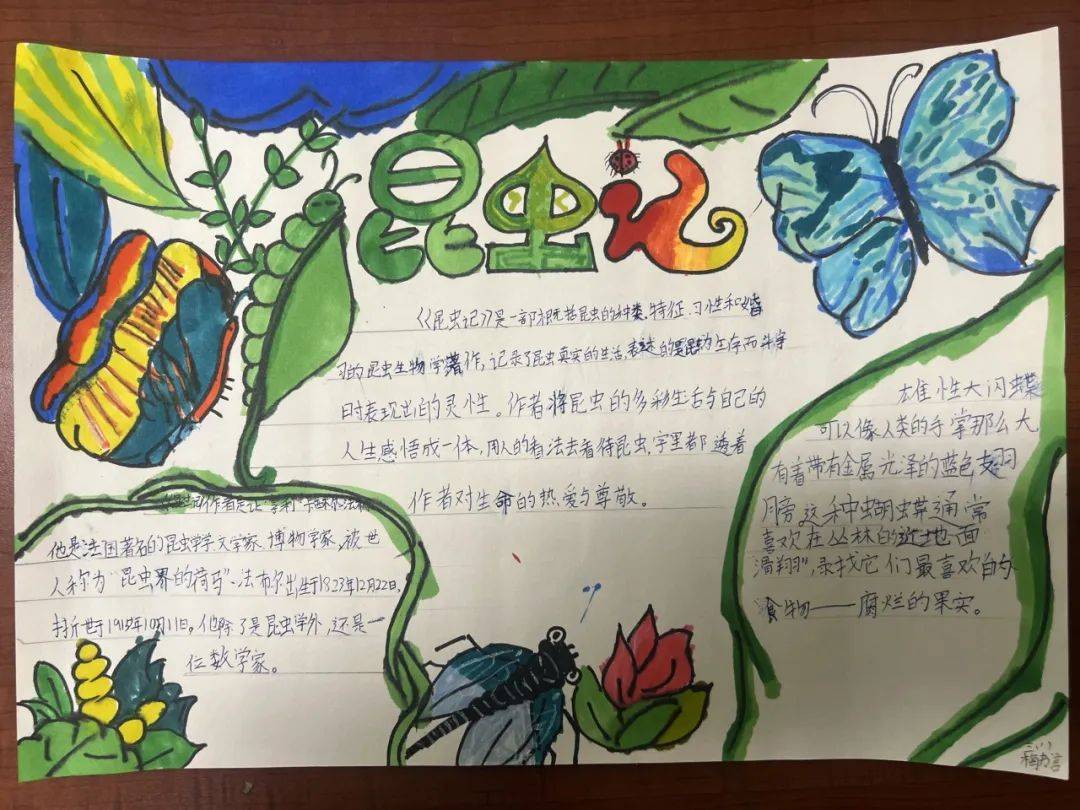 昆虫记
《昆虫记》是一部概括昆虫的种类、特征、习性和婚
习的昆虫生物学著作，记录了昆虫真实的生活，表述的是昆虫为生存而斗争
时表现出的灵性。作者将昆虫的多彩生活与自己的
人生感悟成一体，用人的看法去看待昆虫，字里都透着
作者对生命的热爱与尊敬。
作者是让·亨利·卡
他是法国著名的昆虫学文学家、博物学家，被世
人称为"昆虫界的荷马"法布尔出生于1823年12月22日，
于191年10月11日。他除了是昆虫学外，还是一
位数学家。
雄性大闪蝶
可以像人类的手掌那么大
有着带有金属光泽的蓝色翅
膀这种蝴蝶通常
喜欢在丛林的地面
滑翔"，寻找它们最喜欢的
食物——腐烂的果实。